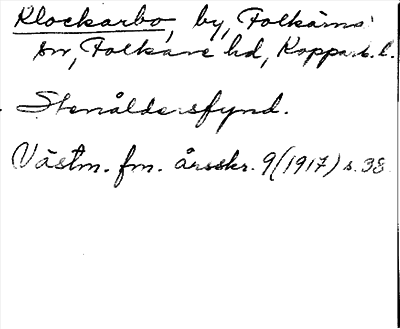 Klockarbo, by, Folkärna
sn, Folkare hd, Koppa.b.l.
Stenåldersfynd.
Västm. fm. årsskr. 9(1917) s. 38